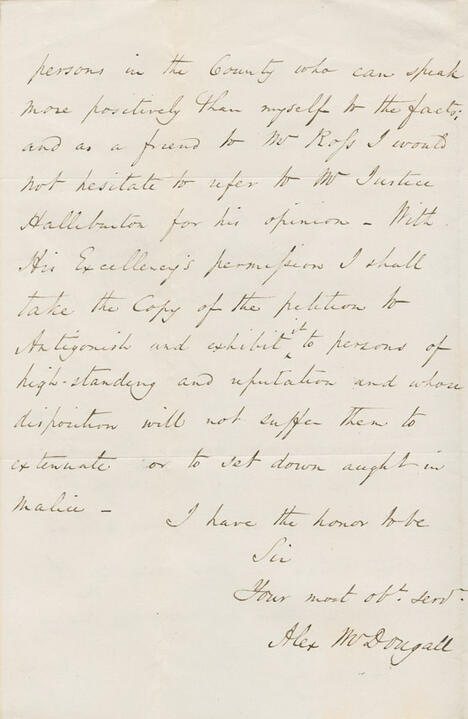 persons in the County who can speak
more positively than myself to the facts;
and as a friend to Mr Ross I would
not hesitate to refer to Mr Justice
Halliburton for his opinion – With
His Excellency's permission I shall
take the Copy of the petition to
Antigonish and exhibit it to persons of
high-standing and reputation and whose
disposition will not suffer them to
extenuate or to set down aught in
malice –
I have the honor to be
Sir
Your most obt. servt.
Alex McDougall